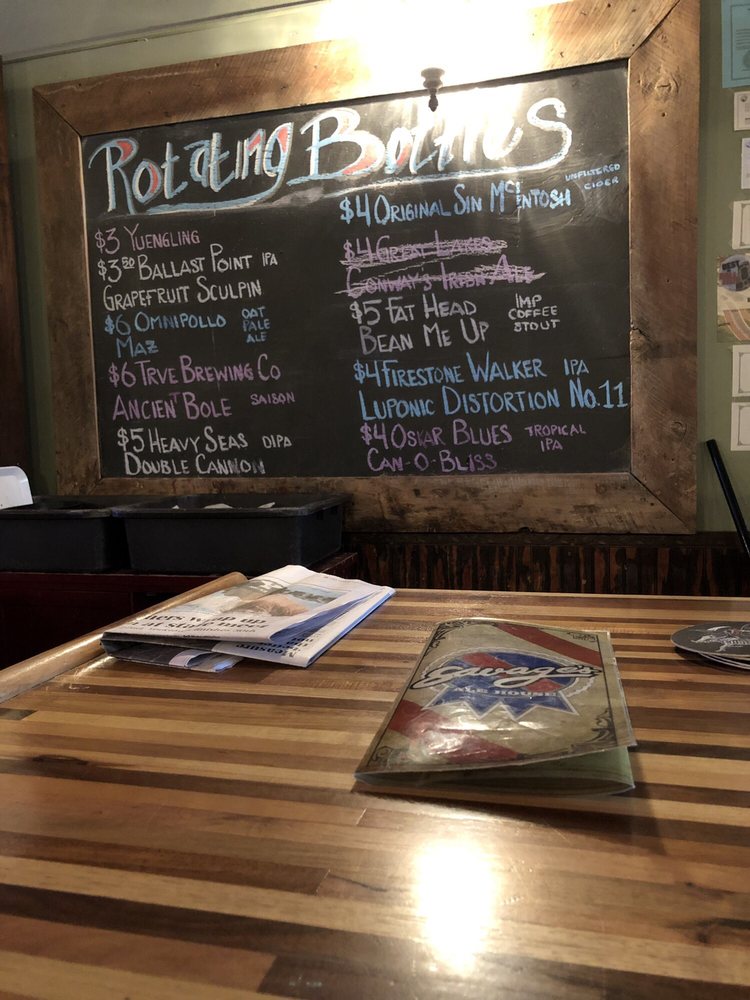 Rotating Bottles
$3 Yuengling
$3.50 Ballast Point IPA
Grapefruit Sculpin
$6 Omnipollo
Maz
Oat
Pale
Ale
$6 TRVE Brewing Co
Ancient Bole Saison
$5 Heavy Seas DIPA
Double Cannon
$4 Original Sin McIntosh
Unfiltered
Cider
$4 Great Lakes
Conway's Irish Ale
$5 Fat Head
Bean Me Up
Imp
Coffee
Stout
$4 Firestone Walker IPA
Luponic Distortion No.11
$4 Oskar Blues
Can-O-Bliss
Tropical
IPA
Ale House